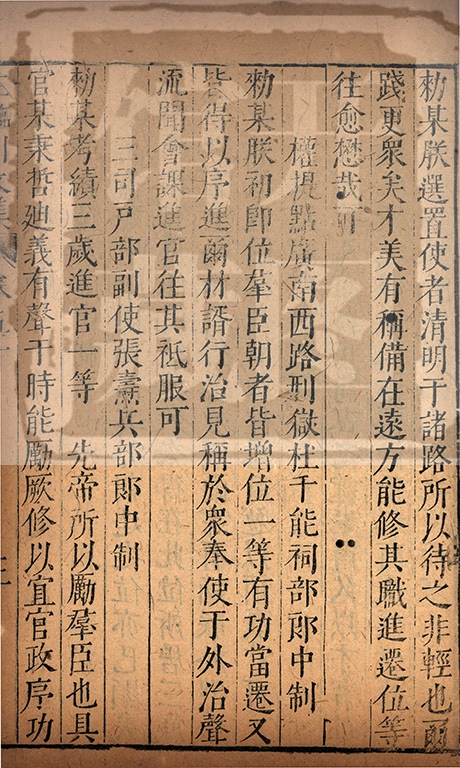 勑某朕選置使者清明于諸路所以待之非輕也爾
踐更衆矣才美有稱備在遠方能修其職進遷位等
往愈懋哉可
權提點廣南西路刑獄杜千能祠部郎中制
勑某朕初即位羣臣朝者皆增位一等有功當遷又
皆得以序進爾材諝行治見稱於衆奉使于外治聲
流聞會課進官往其祗服可
三司戸部副使張燾兵部郎中制
勑某考績三歲進官一等 先帝所以勵羣臣也具
官某秉哲廸義有聲于時能勵厥修以宜官政序功